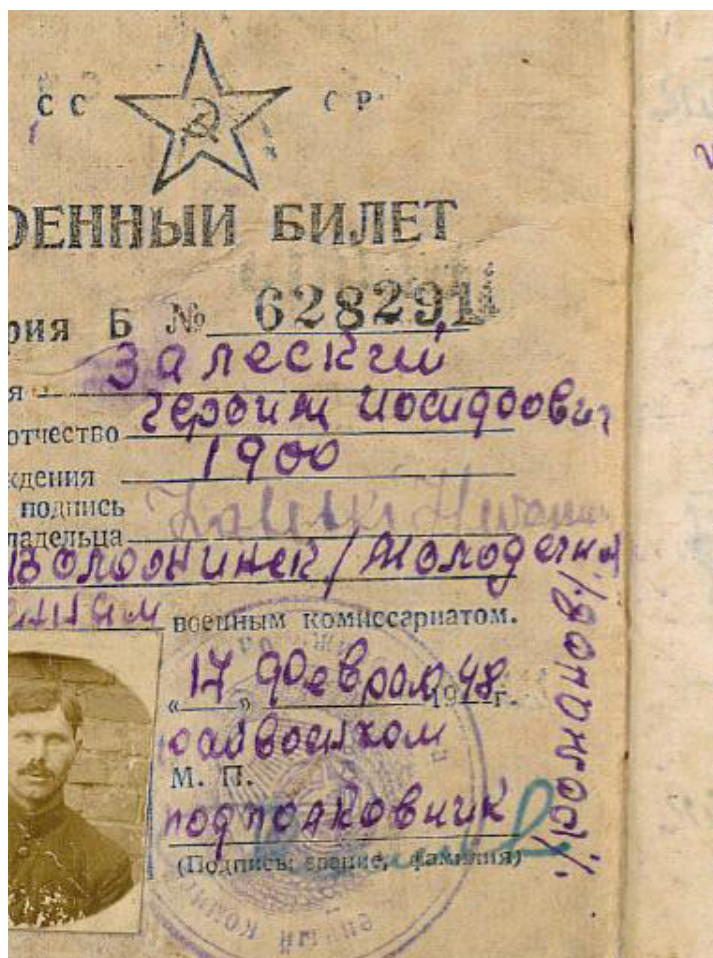 СС СР
ОЕННЫЙ БИЛЕТ
рия Б № 628291
я Залеский
отчество Героим Иосидоович
ждения 1900
подпись
ладельца
Воложинск / Молодечн
военным комиссариатом.
„17“ феврал 1948 г.
райвоенком
М. П.
подполковник
/Романов/
(Подпись, звание, фамилия)